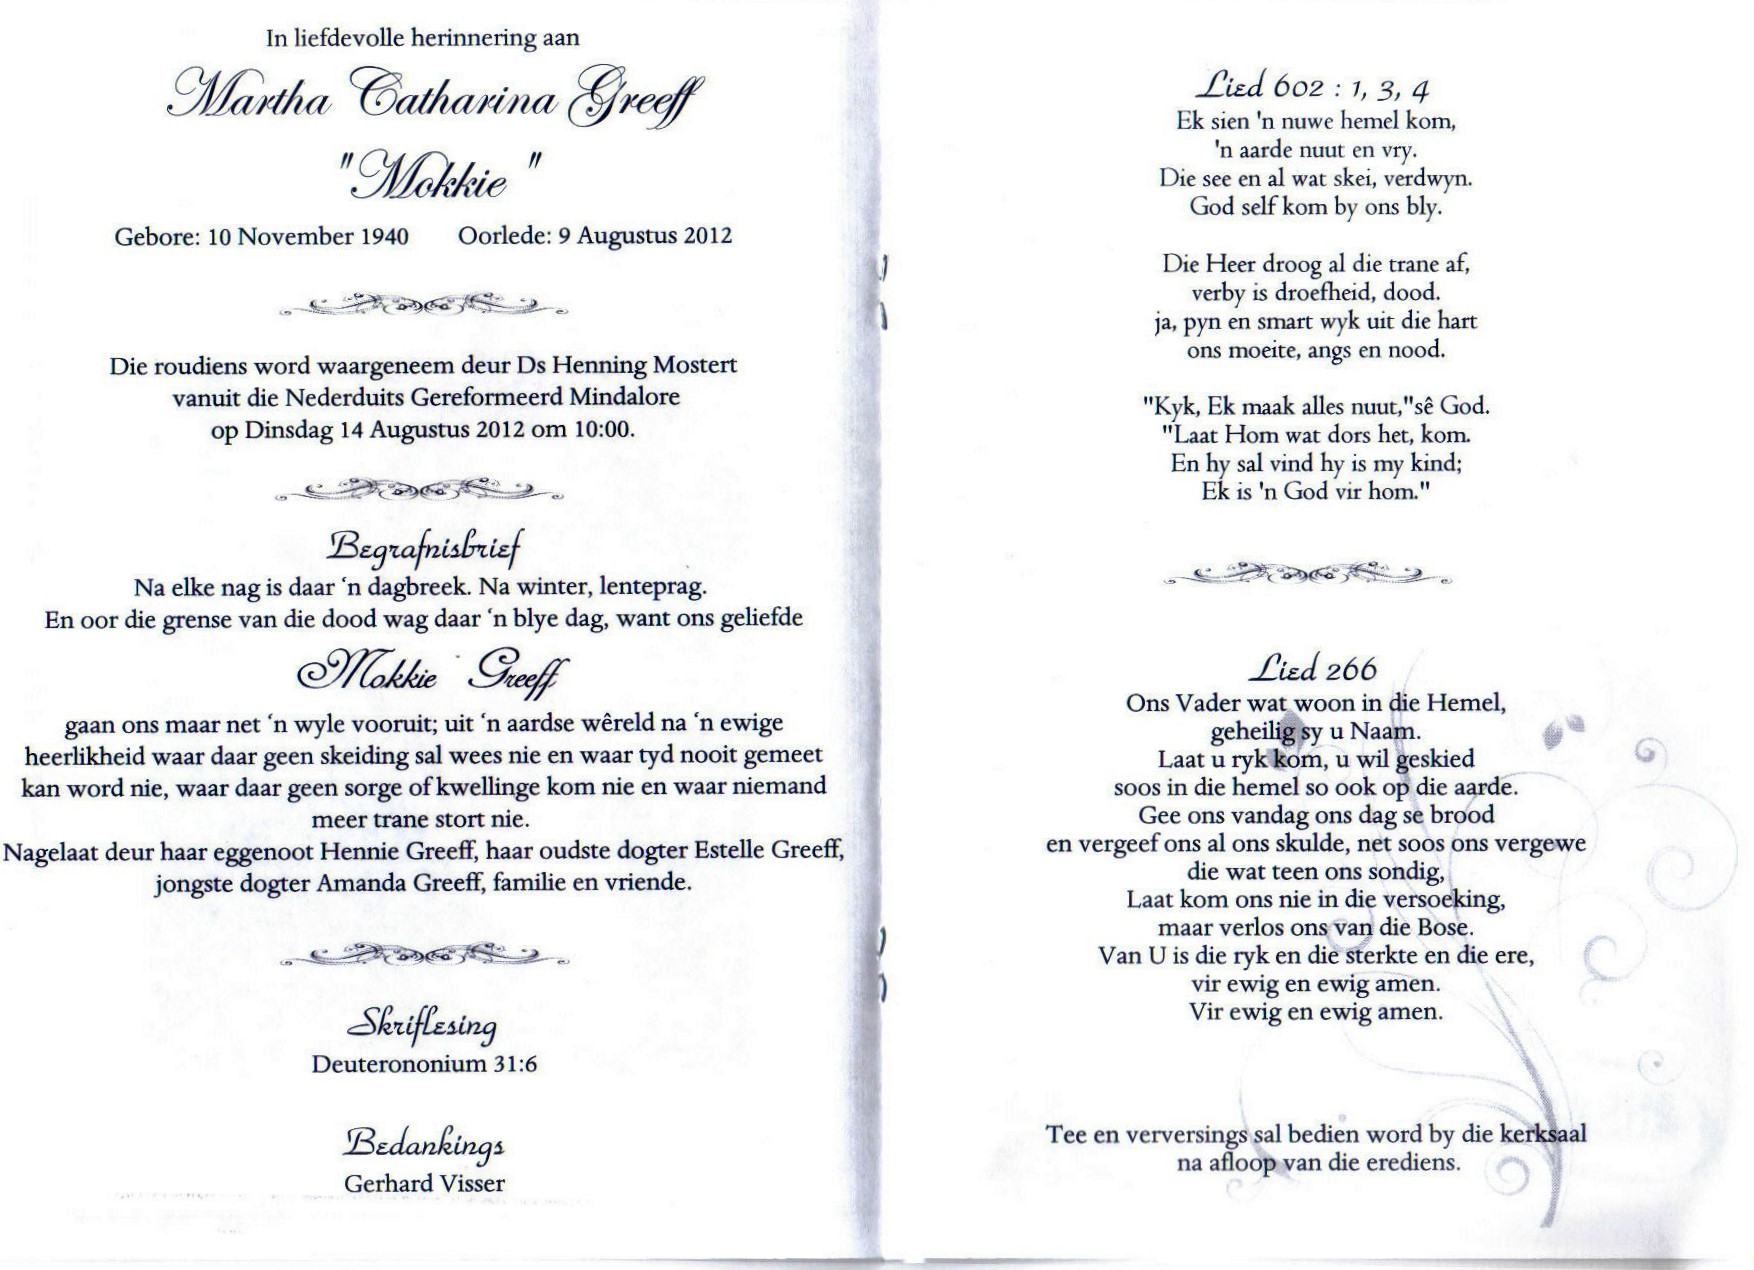 In liefdevolle herinnering aan
Martha Catharina Greeff
"Mokkie "
Gebore: 10 November 1940 Oorlede: 9 Augustus 2012
Die roudiens word waargeneem deur Ds Henning Mostert
vanuit die Nederduits Gereformeerd Mindalore
op Dinsdag 14 Augustus 2012 om 10:00.
Begrafnisbrief
Na elke nag is daar ‘n dagbreek. Na winter, lenteprag.
En oor die grense van die dood wag daar ‘n blye dag, want ons geliefde
Mokkie Greeff
gaan ons maar net ‘n wyle vooruit; uit ‘n aardse wêreld na ‘n ewige
heerlikheid waar daar geen skeiding sal wees nie en waar tyd nooit gemeet
kan word nie, waar daar geen sorge of kwellinge kom nie en waar niemand
meer trane stort nie.
Nagelaat deur haar eggenoot Hennie Greeff, haar oudste dogter Estelle Greeff,
jongste dogter Amanda Greeff, familie en vriende.
Skriflesing
Deuterononium 31:6
Bedankings
Gerhard Visser
Lied 602 : 1, 3, 4
Ek sien 'n nuwe hemel kom,
'n aarde nuut en vry.
Die see en al wat skei, verdwyn.
God self kom by ons bly.
Die Heer droog al die trane af,
verby is droefheid, dood.
ja, pyn en smart wyk uit die hart
ons moeite, angs en nood.
"Kyk, Ek maak alles nuut,"sê God.
"Laat Hom wat dors het, kom.
En hy sal vind hy is my kind;
Ek is 'n God vir hom."
Lied 266
Ons Vader wat woon in die Hemel,
geheilig sy u Naam.
Laat u ryk kom, u wil geskied
soos in die hemel so ook op die aarde.
Gee ons vandag ons dag se brood
en vergeef ons al ons skulde, net soos ons vergewe
die wat teen ons sondig,
Laat kom ons nie in die versoeking,
maar verlos ons van die Bose.
Van U is die ryk en die sterkte en die ere,
vir ewig en ewig amen.
Vir ewig en ewig amen.
Tee en verversings sal bedien word by die kerksaal
na afloop van die erediens.